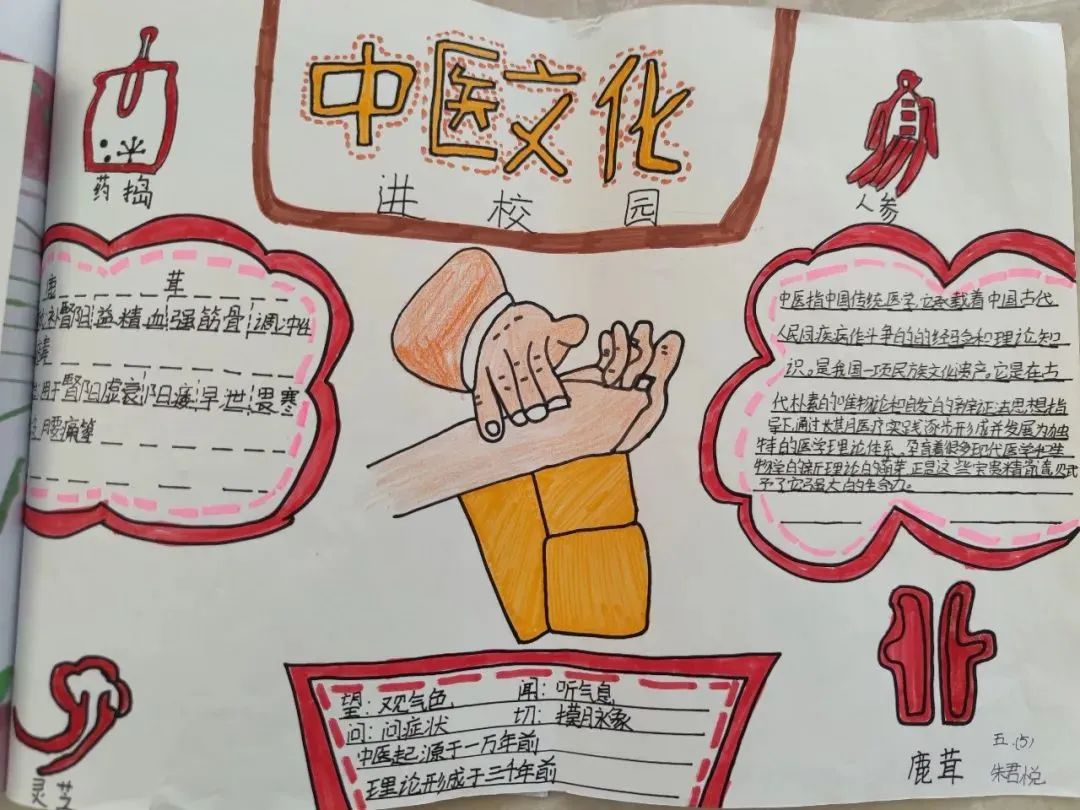 中医文化
进校园
药捣
人参
鹿茸
补肾阳益精血强筋骨调冲
用于肾阳虚衰阳痿早泄畏寒
腰痛等
中医指中国传统医学,它承载着中国古代
人民同疾病作斗争的的经验和理论知
识。是我国一项民族文化遗产。它是在古
代朴素的唯物论和自发的辩证法思想指
导下,通过长期医疗实践逐步形成并发展为独
特的医学理论体系、孕育着很多现代医学和生
物学的新理论的萌芽,正是这些宝贵精
予了它强大的生命力。
望:观气色, 闻:听气息
问:问症状 切:摸脉象
中医起源于一万年前
理论形成于三千年前
灵芝
鹿茸
五.(5)
朱君悦